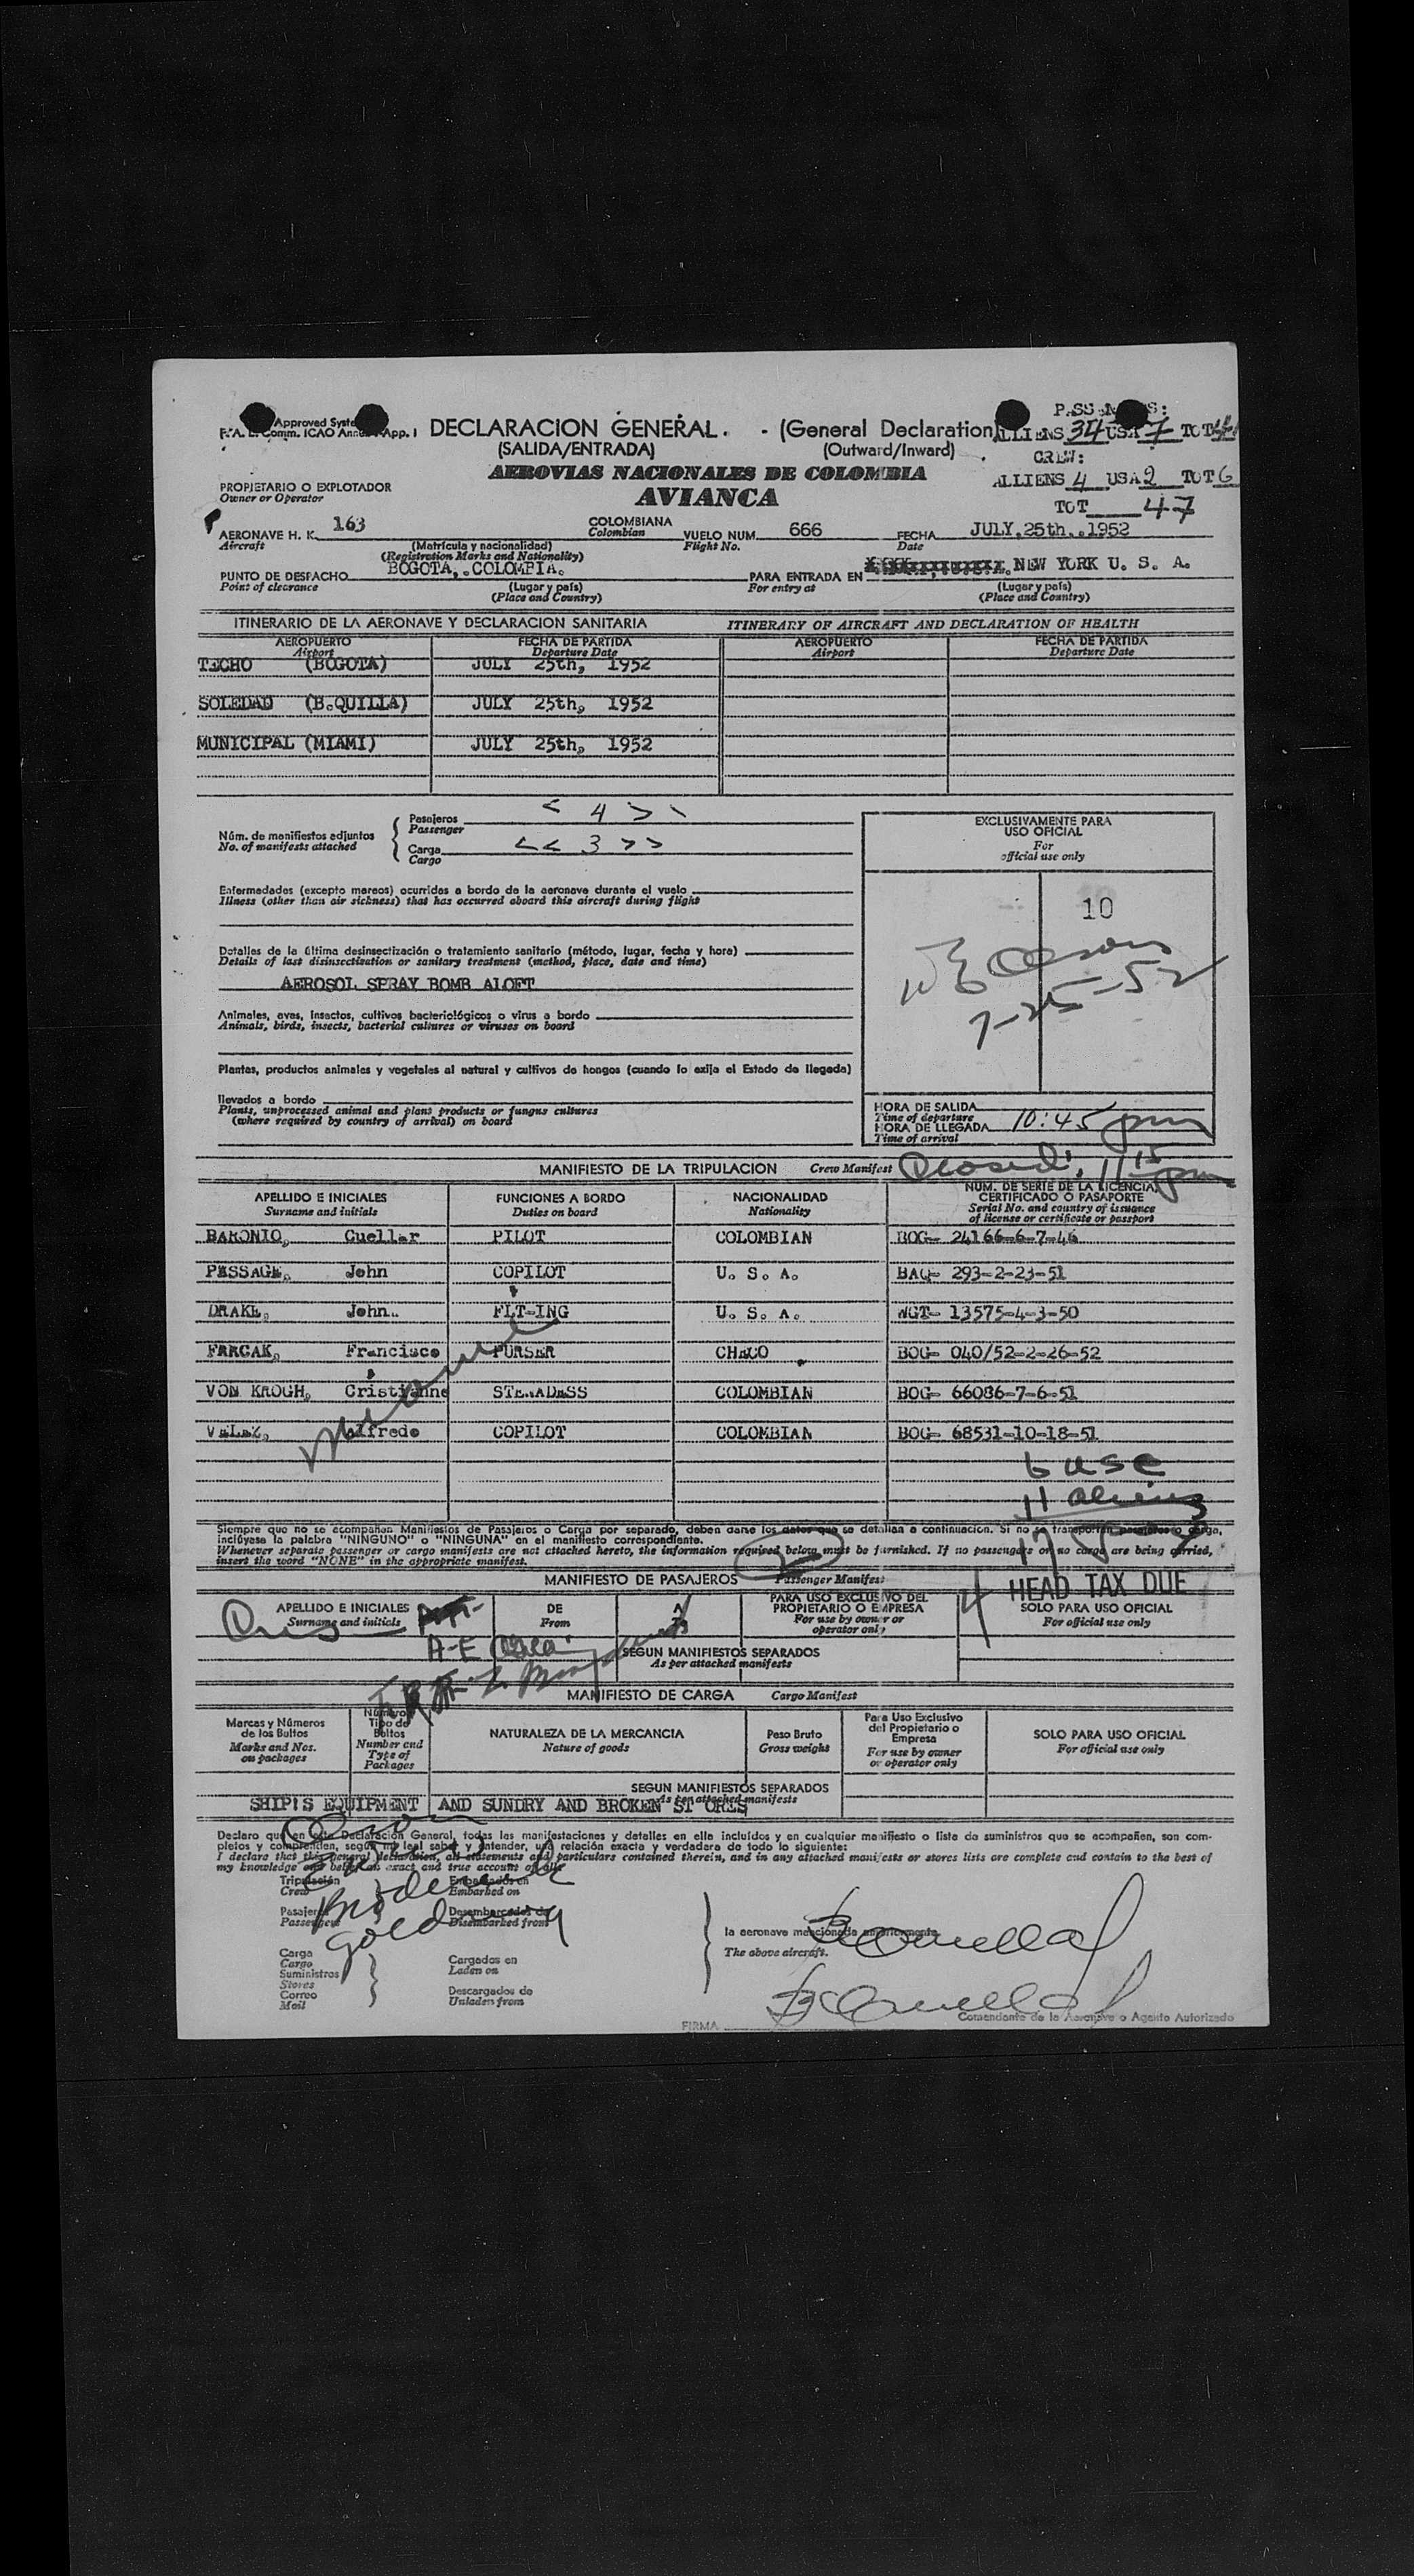 Approved Syste
F.A. L. Comm. ICAO Annex App. I
DECLARACION GENERAL. - (General Declaration)
(SALIDA/ENTRADA) (Outward/Inward)
ALLIENS 34 USA 7 TOT 41
CREW:
AEROVIAS NACIONALES DE COLOMBIA
ALLIENS 4 USA 2 TOT 6
PROPIETARIO O EXPLOTADOR
Owner or Operator
AVIANCA
TOT 47
AERONAVE H. K. 163 COLOMBIANA VUELO NUM. 666 FECHA JULY,25th,.1952
Aircraft (Matrícula y nacionalidad) Colombian Flight No. Date
(Registration Marks and Nationality)
PUNTO DE DESPACHO BOGOTA,.COLOMPIA. PARA ENTRADA EN NEW YORK U. S. A.
Point of clearance (Lugar y país) For entry at (Lugar y país)
(Place and Country) (Place and Country)
ITINERARIO DE LA AERONAVE Y DECLARACION SANITARIA ITINERARY OF AIRCRAFT AND DECLARATION OF HEALTH
AEROPUERTO FECHA DE PARTIDA AEROPUERTO FECHA DE PARTIDA
Airport Departure Date Airport Departure Date
TECHO (BOGOTA) JULY 25th, 1952
SOLEDAD (B.QUILLA) JULY 25th, 1952
MUNICIPAL (MIAMI) JULY 25th, 1952
Núm. de manifiestos adjuntos
No. of manifests attached
Pasajeros < 4 >
Passenger
Carga << 3 >>
Cargo
EXCLUSIVAMENTE PARA
USO OFICIAL
For
official use only
10
7-25-52
Enfermedades (excepto mareos) ocurridas a bordo de la aeronave durante el vuelo
Illness (other than air sickness) that has occurred aboard this aircraft during flight
Detalles de la última desinsectización o tratamiento sanitario (método, lugar, fecha y hora)
Details of last disinsectization or sanitary treatment (method, place, date and time)
AEROSOL SPRAY BOMB ALOFT
Animales, aves, insectos, cultivos bacteriológicos o virus a bordo
Animals, birds, insects, bacterial cultures or viruses on board
Plantas, productos animales y vegetales al natural y cultivos de hongos (cuando lo exija el Estado de llegada)
llevados a bordo
Plants, unprocessed animal and plans products or fungus cultures
(where required by country of arrival) on board
HORA DE SALIDA
Time of departure
HORA DE LLEGADA 10:45 pm
Time of arrival
MANIFIESTO DE LA TRIPULACION Crew Manifest Closed: 11 15 pm
APELLIDO E INICIALES FUNCIONES A BORDO NACIONALIDAD NUM. DE SERIE DE LA LICENCIA,
Surname and initials Duties on board Nationality CERTIFICADO O PASAPORTE
Serial No. and country of issuance
of license or certificate or passport
BARONIO, Cuellar PILOT COLOMBIAN BOG- 24166-6-7-46
PASSAGE, John COPILOT U. S. A. BAQ- 293-2-23-51
DRAKE, John.. FLT-ING U. S. A. WGT- 13575-4-3-50
FARCAK, Francisco PURSER CHECO BOG- 040/52-2-26-52
VON KROGH, Cristianne STEWADESS COLOMBIAN BOG- 66086-7-6-51
VELEZ, Alfredo COPILOT COLOMBIAN BOG- 68531-10-18-51
6 usc
11 aliens
17
Siempre que no se acompañan Manifiestos de Pasajeros o Carga por separado, deben darse los datos que se detallan a continuación. Si no se transportan pasajeros o carga,
inclúyase la palabra "NINGUNO" o "NINGUNA" en el manifiesto correspondiente.
Whenever separate passenger or cargo manifests are not attached hereto, the information required below must be furnished. If no passengers or no cargo are being carried,
insert the word "NONE" in the appropriate manifest.
MANIFIESTO DE PASAJEROS Passenger Manifest
4 HEAD TAX DUE
APELLIDO E INICIALES DE A PARA USO EXCLUSIVO DEL SOLO PARA USO OFICIAL
Surname and initials From To PROPIETARIO O EMPRESA For official use only
For use by owner or
operator only
SEGUN MANIFIESTOS SEPARADOS
As per attached manifests
MANIFIESTO DE CARGA Cargo Manifest
Marcas y Números
de los Bultos
Marks and Nos.
on packages
Número y
Tipo de
Bultos
Number and
Type of
Packages
NATURALEZA DE LA MERCANCIA
Nature of goods
Peso Bruto
Gross weight
Para Uso Exclusivo
del Propietario o
Empresa
For use by owner
or operator only
SOLO PARA USO OFICIAL
For official use only
SEGUN MANIFIESTOS SEPARADOS
As per attached manifests
SHIP'S EQUIPMENT AND SUNDRY AND BROKEN ST ORES
Declaro que en esta Declaración General, todas las manifestaciones y detalles en ella incluídos y en cualquier manifiesto o lista de suministros que se acompañen, son com-
pletos y comprenden, según mi leal saber y entender, una relación exacta y verdadera de todo lo siguiente:
I declare that this general declaration, all statements and particulars contained therein, and in any attached manifests or stores lists are complete and contain to the best of
my knowledge and belief an exact and true account of all:
Tripulación Embarcados en
Crew Embarked on
Pasajeros Desembarcados de
Passengers Disembarked from
la aeronave mencionada anteriormente.
The above aircraft.
Carga
Cargo Cargados en
Suministros Laden on
Stores
Correo Descargados de
Mail Unladen from
FIRMA Comandante de la Aeronave o Agente Autorizado